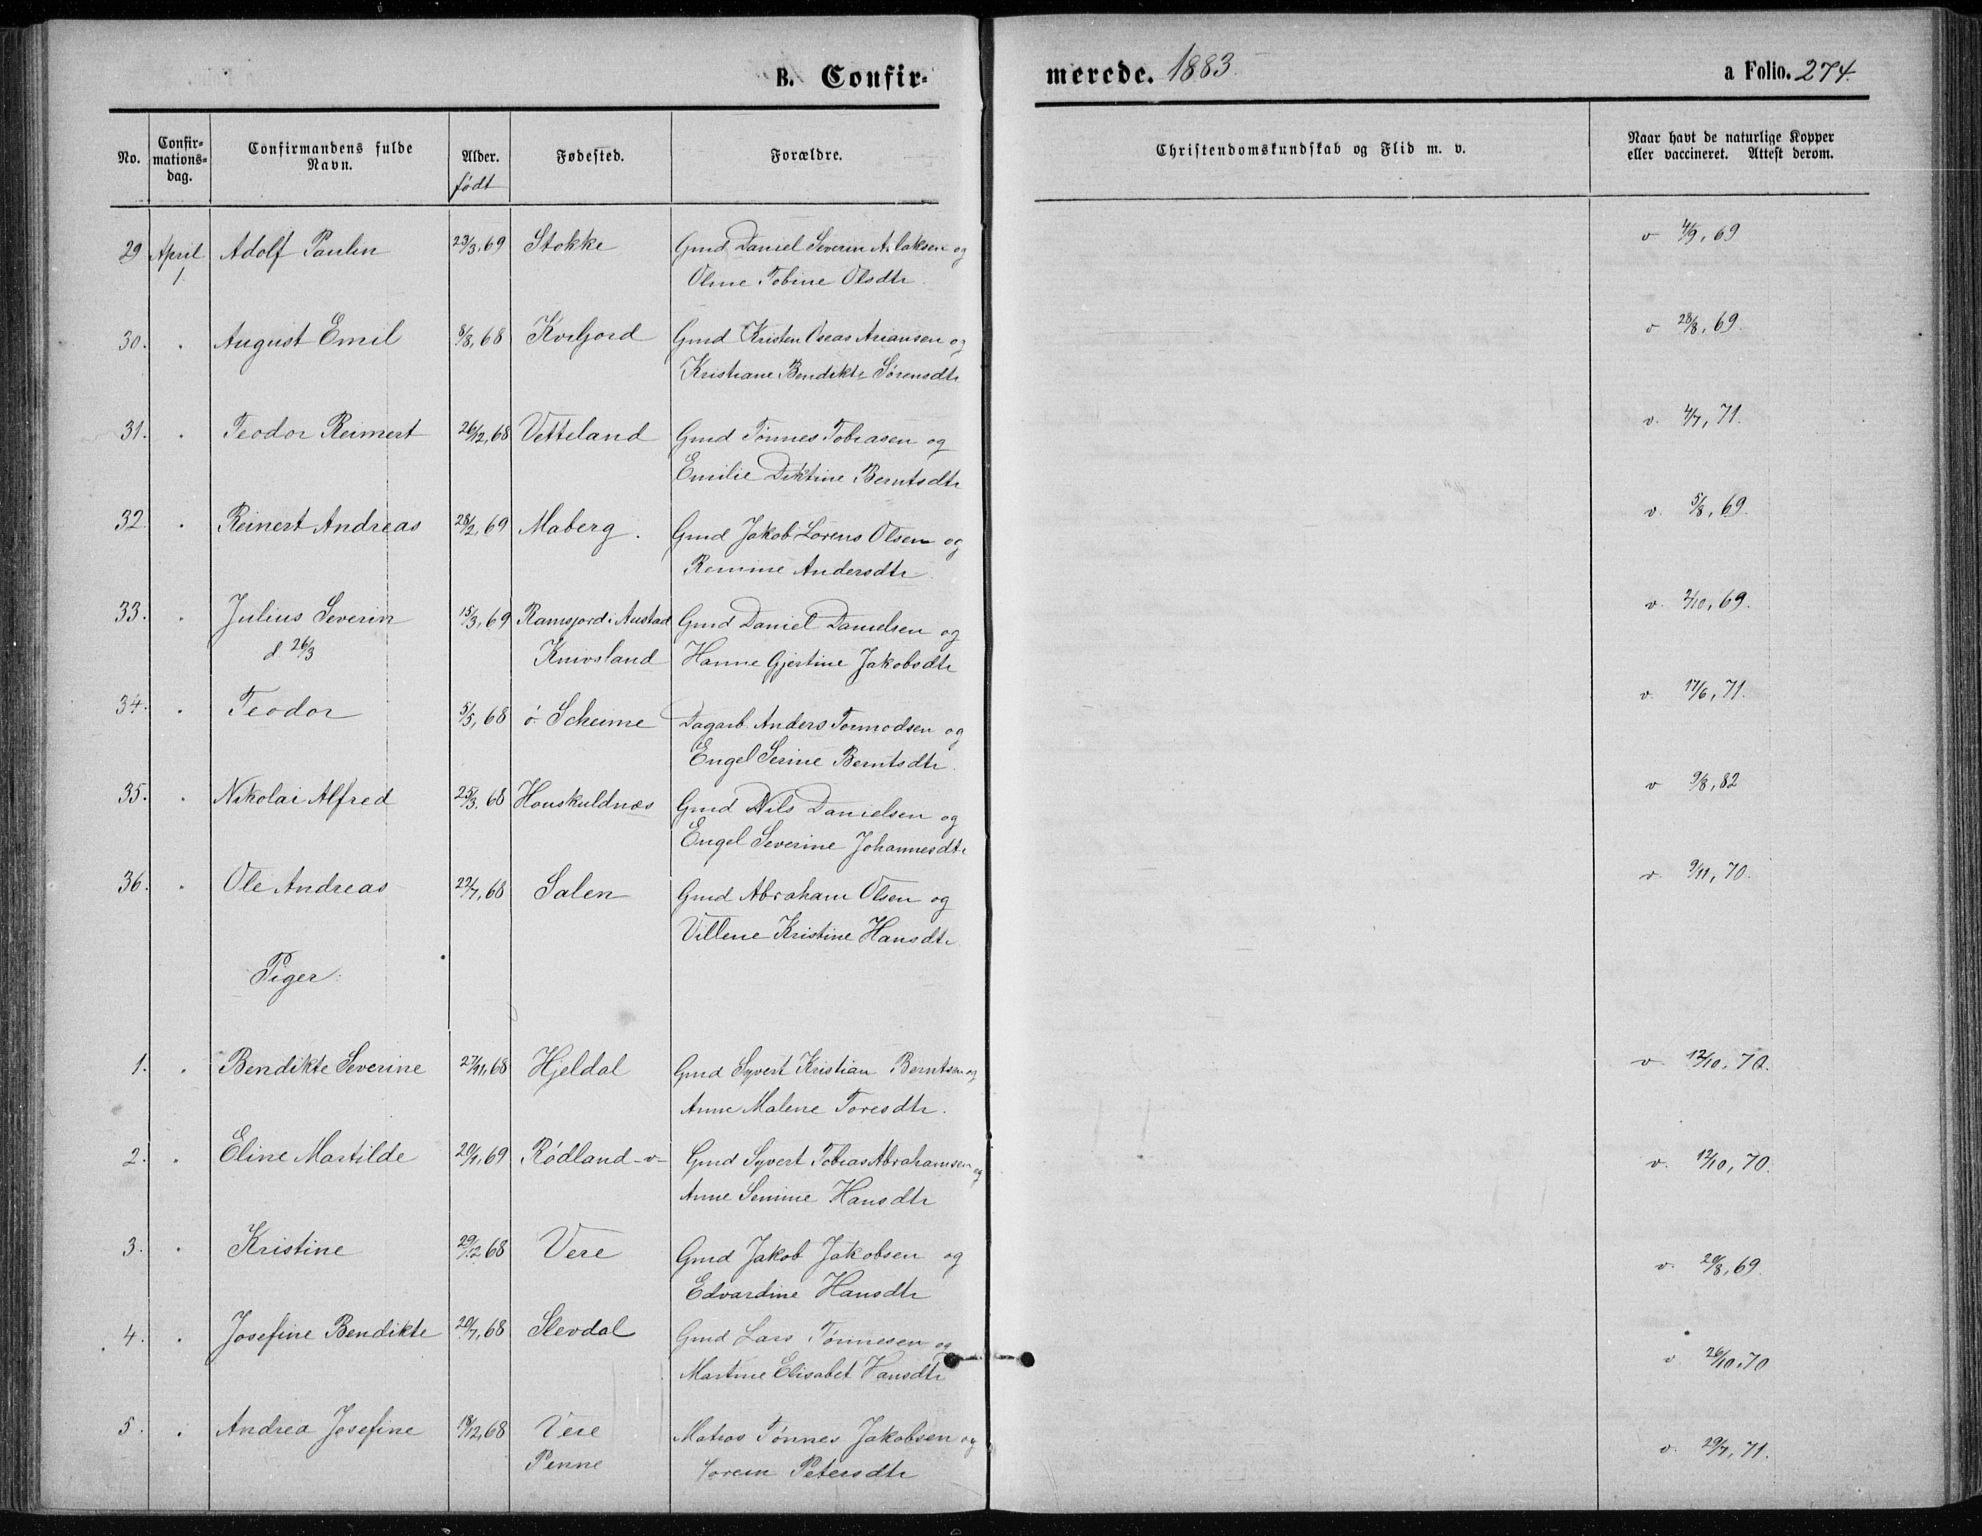 B. Confir-
merede. 1883.
a Folio. 274.
No.
Confir-
mations-
dag.
Confirmandens fulde
Navn.
Alder.
født
Fødested.
Forældre.
Christendomskundskab og Flid m. v.
Naar havt de naturlige Kopper
eller vaccineret. Attest derom.
29 April Adolf Paulin 23/3,69 Stokke Gmd Daniel Severin Aslaksen og v 4/9,69
1. Oline Tobine Olsdtr.
30. . August Emil 8/8,68 Kvifjord Gmd Kristen Oseas Ariansen og v 28/8,69.
Kristiane Bendikte Sørensdtr
31. . Teodor Reinert 26/12,68 Vetteland Gmd Tønnes Tobiasen og v. 4/7,71.
Emilie Berntsdtr
32 . Reinert Andreas 28/2,69 Maberg. Gmd Jakob Lorens Olsen og v. 5/8,69.
Romine Andersdtr.
33. . Julius Severin 15/3,69 Ramsjord i Austad Gmd Daniel Danielsen og v. 2/10,69.
d 26/3 Knivsland Hanne Gjertine Jakobsdtr
34. . Teodor 5/5,68 ø. Scheime Dagarb. Anders Tormodsen og v. 17/6,71.
Engel Serine Berntsdtr.
35. . Nikolai Alfred 25/3,68 Houskuldnæs Gmd Nils Danielsen og v 9/8,82
Engel Severine Johannesdtr
36. . Ole Andreas 22/7,68 Salen Gmd Abraham Olsen og v. 9/11,70.
Villene Kristine Hansdtr.
Piger.
1. . Bendikte Severine 27/11,68 Hjeldal Gmd Syvert Kristian Berntsen og v. 12/10,70.
Anne Malene Toresdtr.
2. . Eline Martilde 20/1,69 Rødland -v- Gmd Syvert Tobias Abrahamsen og v. 12/10,70.
Anne Semine Hansdtr
3. . Kristine 29/12,68 Vere Gmd Jakob Jakobsen og v. 20/8,69.
Edvardine Hansdtr
4. . Josefine Bendikte 20/7,68 Slevdal Gmd Lars Tønnesen og v 26/10,70
Martine Elisabet Hansdtr
5. . Andrea Josefine 18/12,68 Vere Matros Tønnes Jakobsen og v. 29/7,71.
Penne Soren Petersdtr